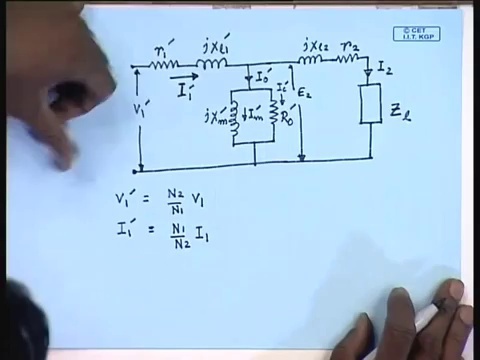 © CET
I.I.T. KGP
r₁′ jx_l₁′ jx_l₂ r₂
I₁′ I₀′ I₂
V₁′ jx_m′ I_m′ I_c′ R₀′ E₂ Z_l
V₁′ = N₂/N₁ V₁
I₁′ = N₁/N₂ I₁